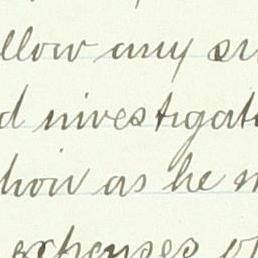 llow any su
d investigat
hoir as he m
expenses of